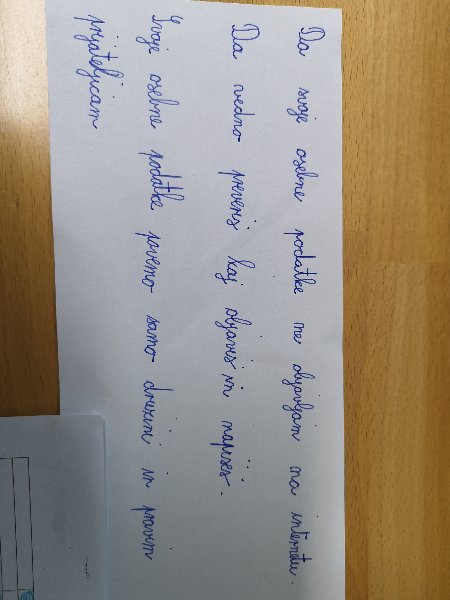 Da svoje osebne podatke ne objavljam na internetu.
Da vedno preveriš kaj objaviš in napišeš.
Svoje osebne podatke povemo samo družini in pravim
prijateljicam